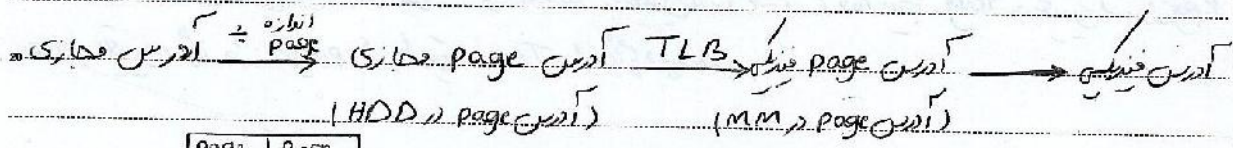 آدرس مجازی ÷ اندازه page → آدرس page مجازی TLB → آدرس page فیزیکی → آدرس فیزیکی
(آدرس page در HDD) (آدرس page در MM)
page